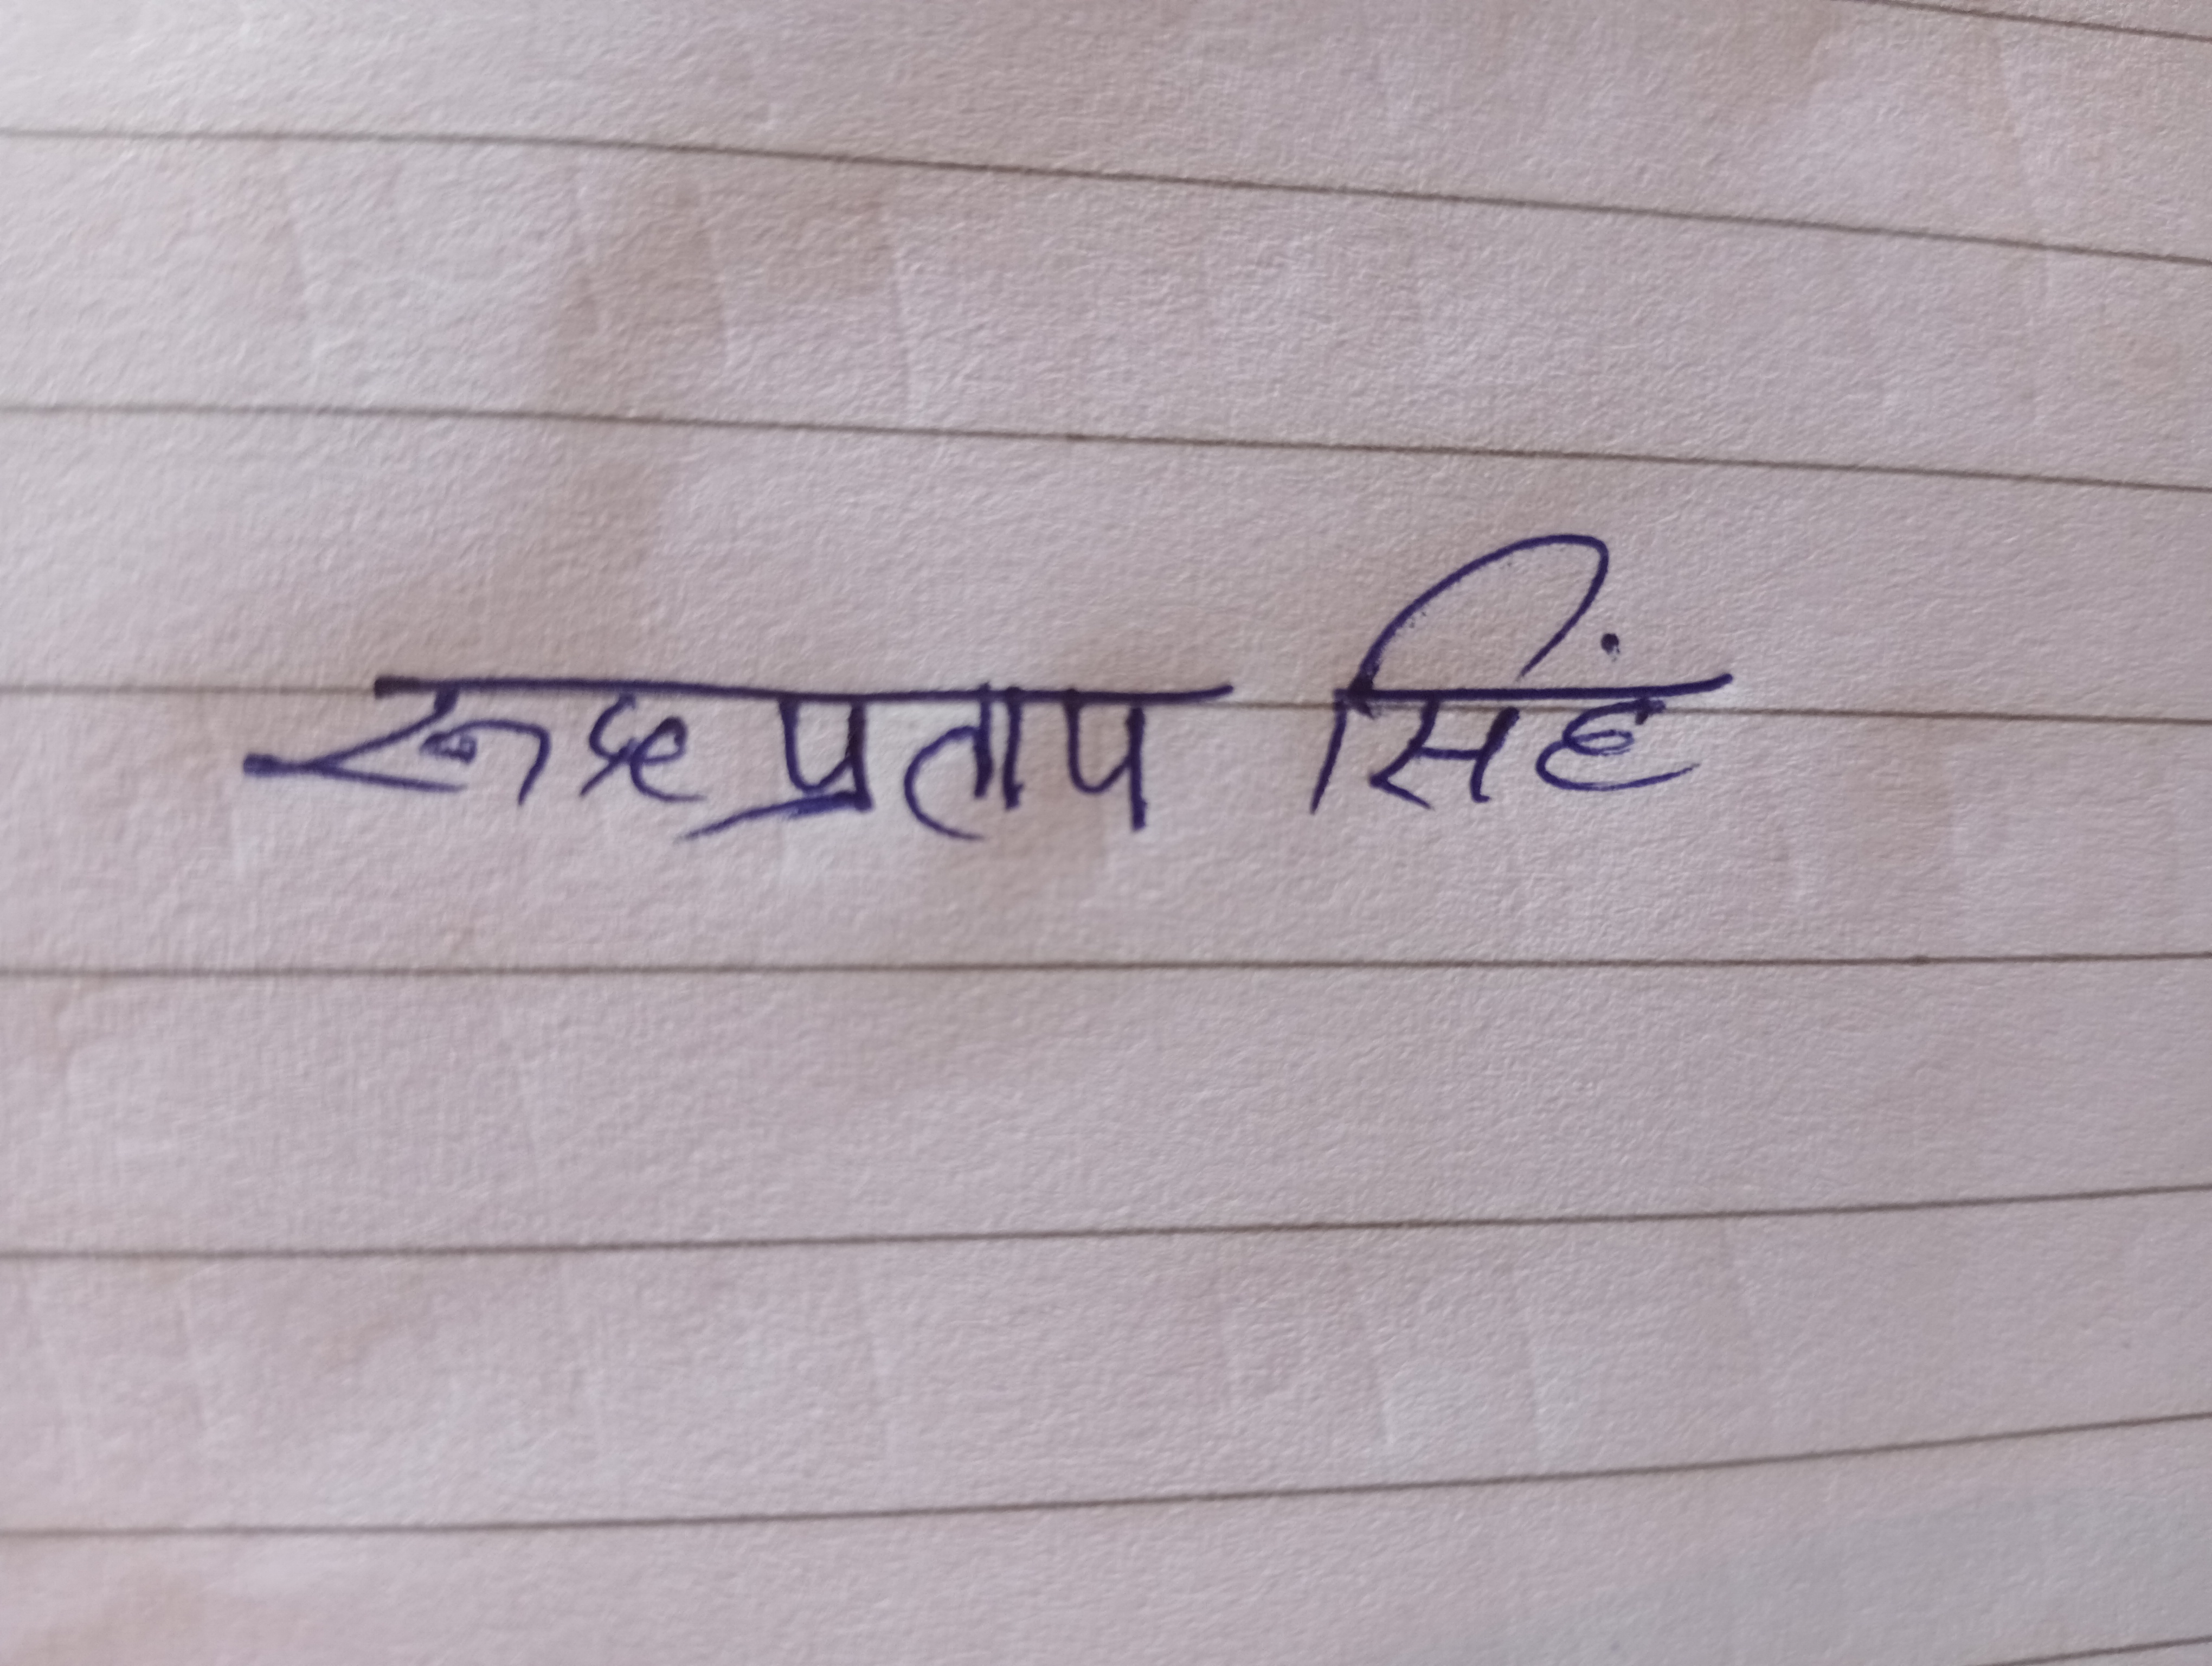 रूद्र प्रताप सिंह